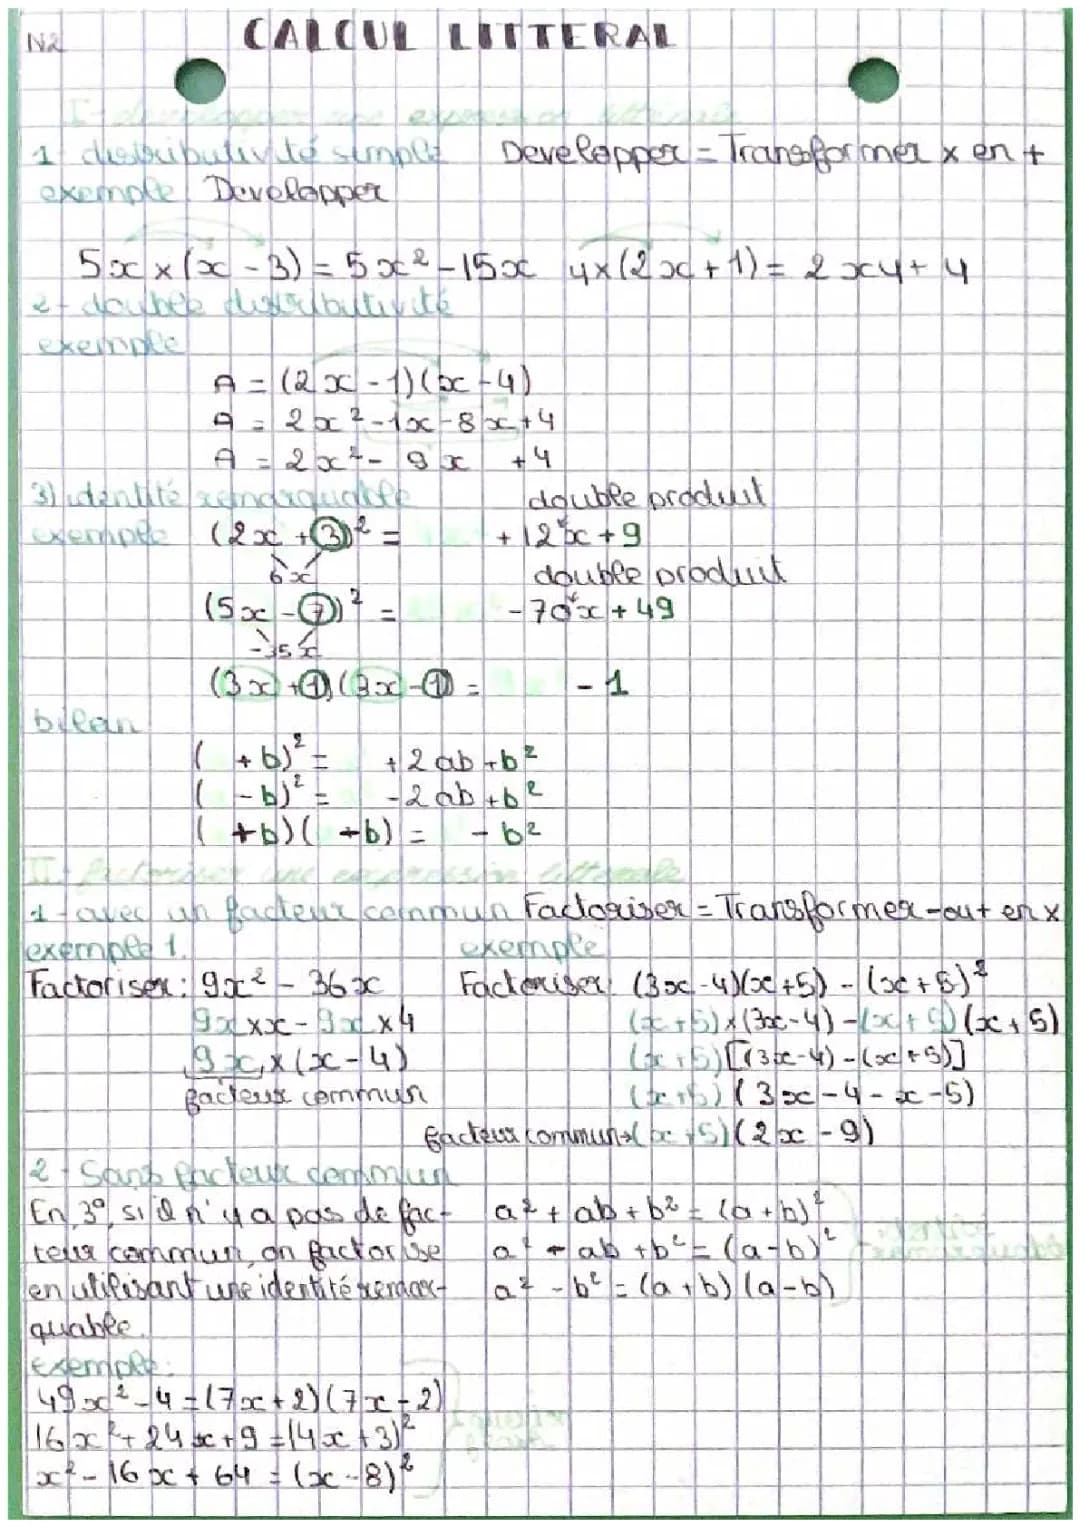 N2
CALCUL LITTERAL
I- developper une expression litterale
1- distributivité simple Developper = Transformer x en +
exemple Developper
5x x (x - 3) = 5x² - 15x 4x(2x + 1) = 2x4 + 4
2- double distributivité
exemple
A = (2x - 1)(x - 4)
A = 2x² - 1x - 8x + 4
A = 2x² - 9x + 4
3) identité remarquable double produit
exemple (2x + 3)² = + 12x + 9
6x double produit
(5x - 7)² = - 70x + 49
-35x
(3x + 1)(3x - 1) = - 1
bilan
( + b)² = + 2ab + b²
( - b)² = - 2ab + b²
( + b)( + b) = - b²
II- factoriser une expression litterale
1- avec un facteur commun Factoriser = Transformer - ou + en x
exemple 1. exemple
Factoriser : 9x² - 36x Factoriser (3x - 4)(x + 5) - (x + 5)²
9x x x - 9x x 4 (x + 5) x (3x - 4) - (x + 5)(x + 5)
9x x (x - 4) (x + 5)[(3x - 4) - (x + 5)]
facteur commun (x + 5)(3x - 4 - x - 5)
facteur commun → (x + 5)(2x - 9)
2- Sans facteur commun
En 3°, si il n'y a pas de fac- a² + ab + b² = (a + b)²
teur commun, on factorise a² - ab + b² = (a - b)²
en utilisant une identité remar- a² - b² = (a + b)(a - b)
quable.
Exemple:
49x² - 4 = (7x + 2)(7x - 2)
16x² + 24x + 9 = (4x + 3)²
x² - 16x + 64 = (x - 8)²